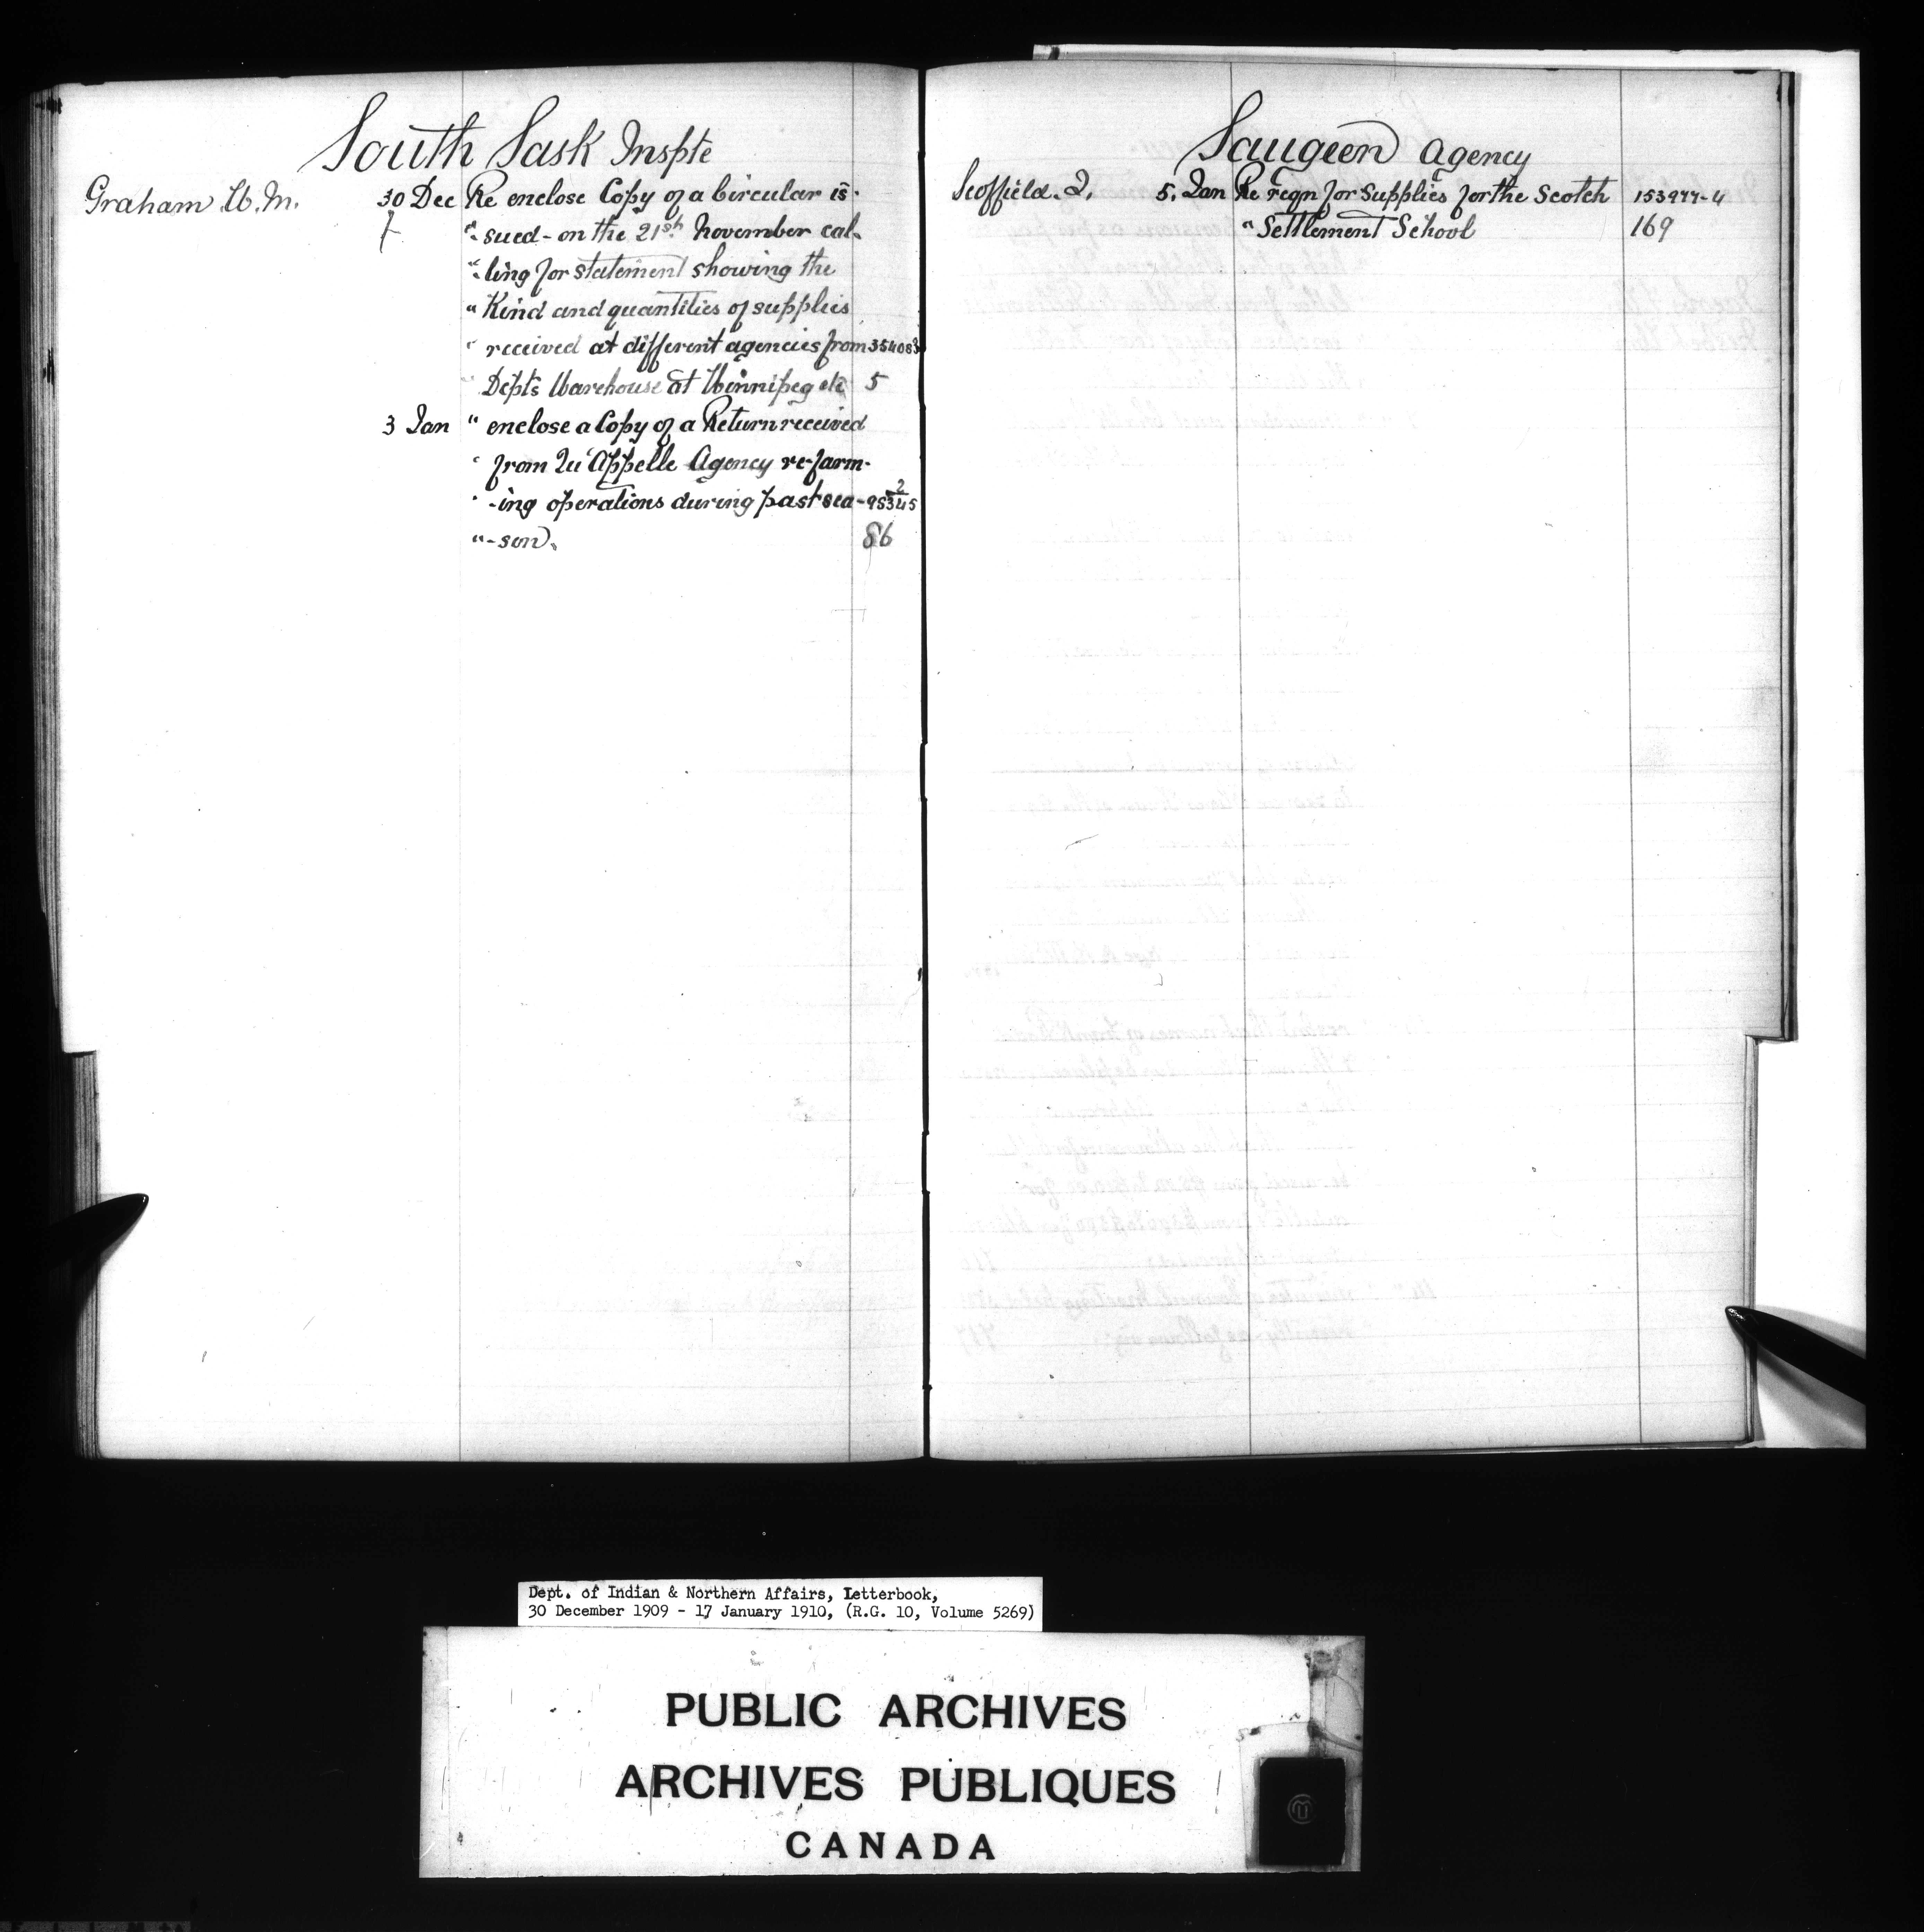 South Sask Inspte
Graham W. M. 30 Dec Re enclose Copy of a Circular is-
" sued - on the 21st November cal-
" ling for statement showing the
" Kind and quantities of supplies
" received at different agencies from 354083
" Depts Warehouse at Winnipeg etc 5
3 Jan " enclose a Copy of a Return received
" from Qu'Appelle Agency re-farm-
" -ing operations during past sea- 95345 2
" -son. 86
Saugeen Agency
Scoffield. J. 5. Jan Re reqn for supplies for the Scotch 153977-4
" Settlement School 169
Dept. of Indian & Northern Affairs, Letterbook,
30 December 1909 - 17 January 1910, (R.G. 10, Volume 5269)
PUBLIC ARCHIVES
ARCHIVES PUBLIQUES
CANADA